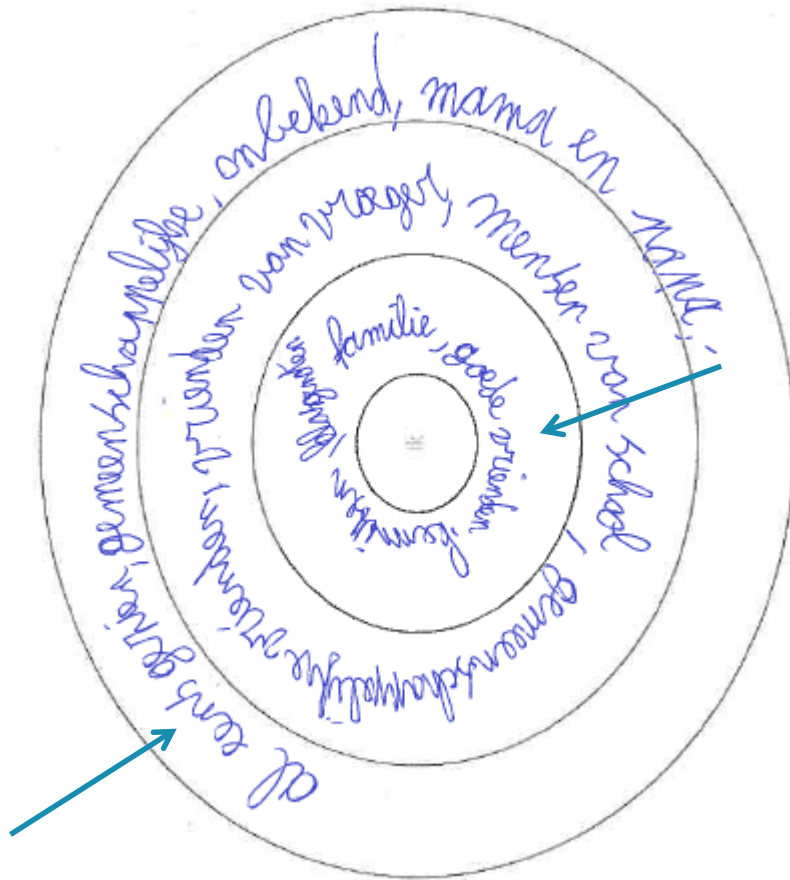 al eens gezien, gemeenschappelijke, onbekend, mama en papa,
gemeenschappelijke vrienden, vrienden van vroeger, mensen van school,
familie, goede vrienden kennissen klasgenoten
IK